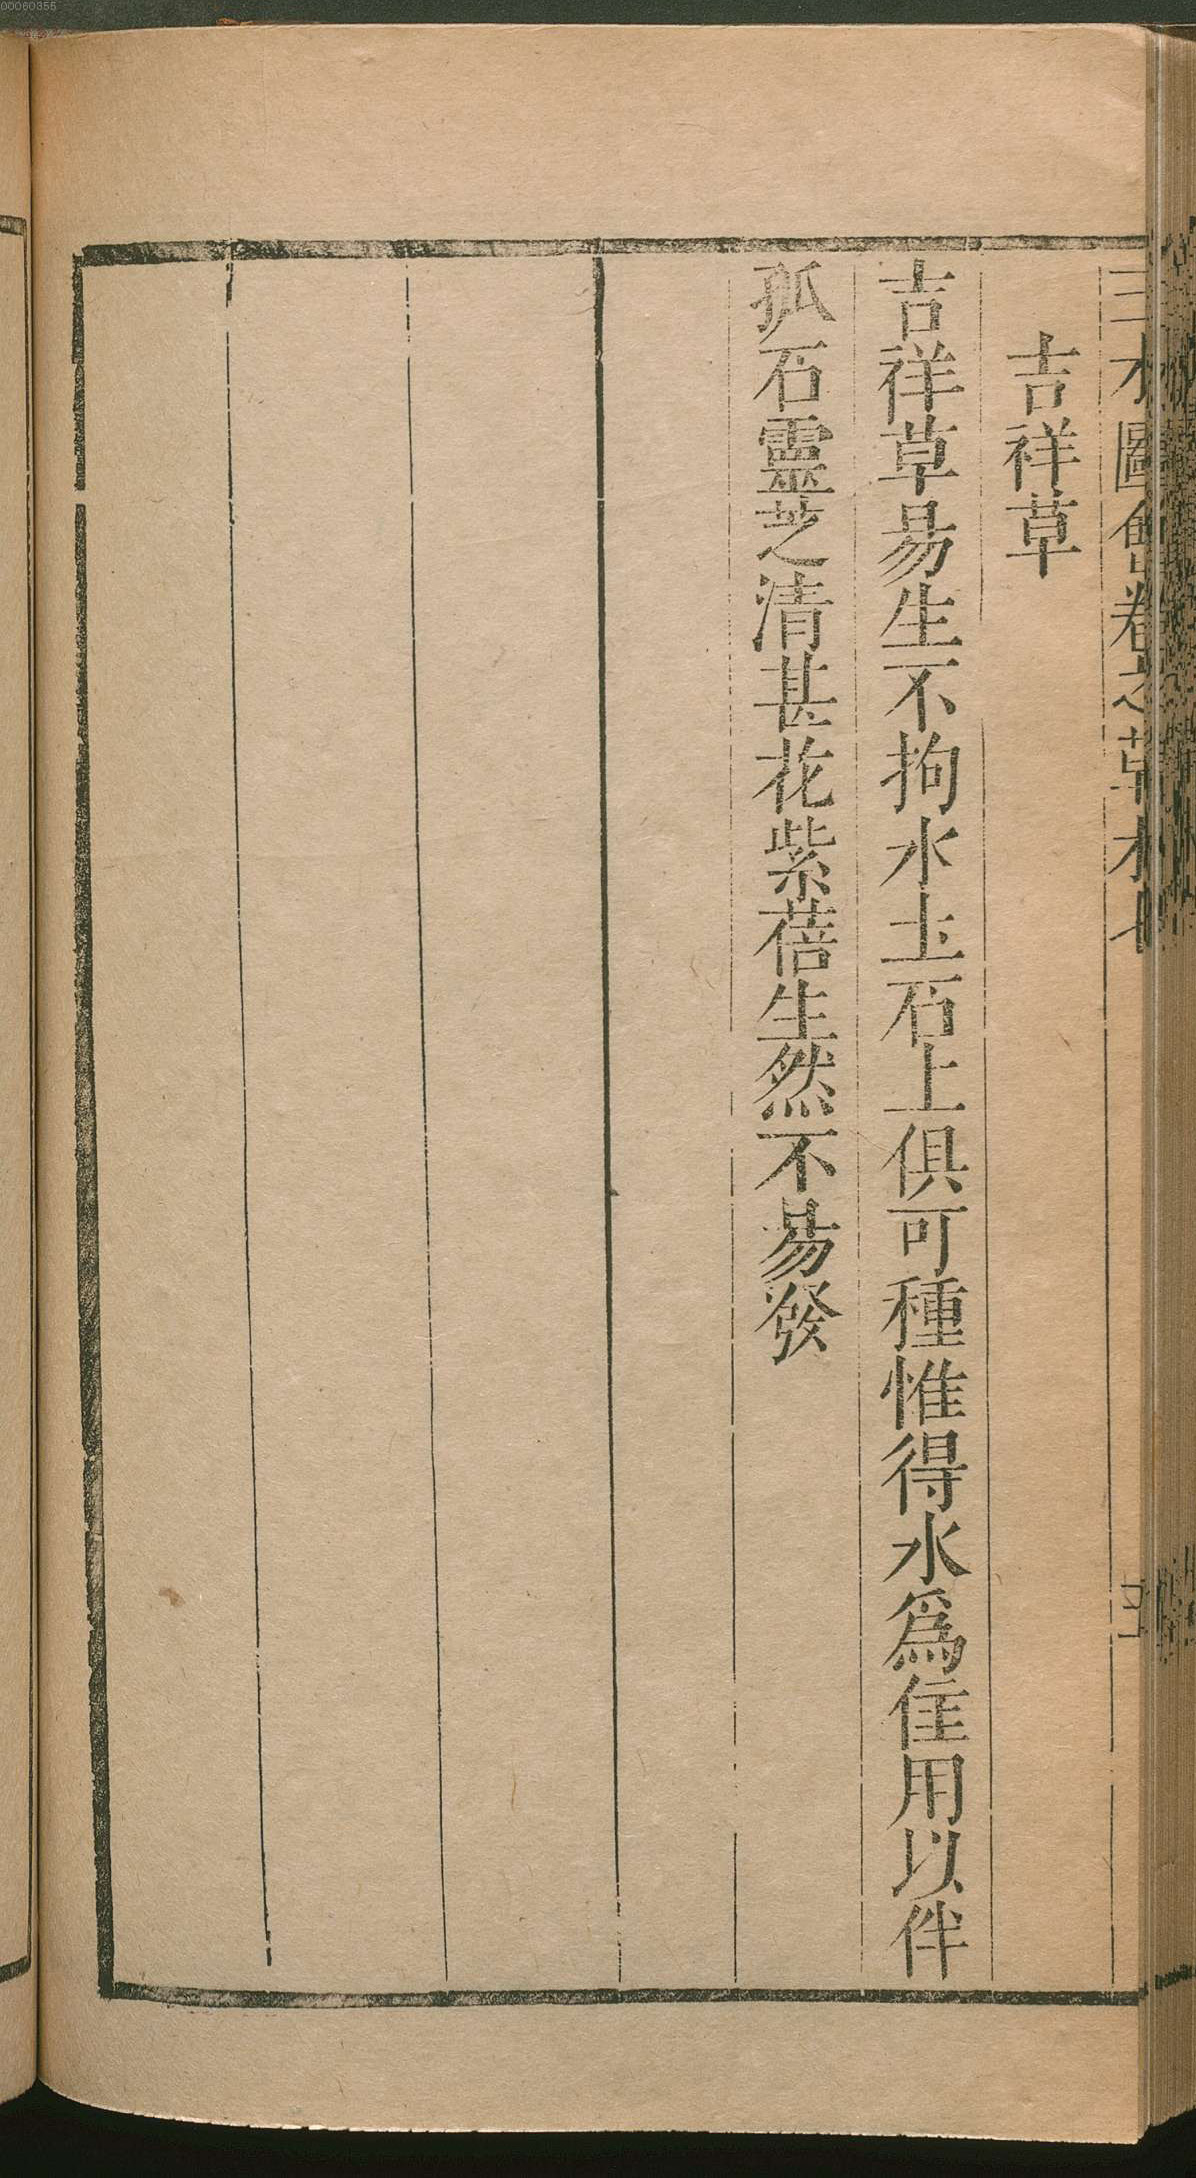 00060355
三才圖會卷之草木十
吉祥草
吉祥草易生不拘水土石上俱可種惟得水爲佳用以伴
孤石靈芝清甚花紫蓓生然不易發